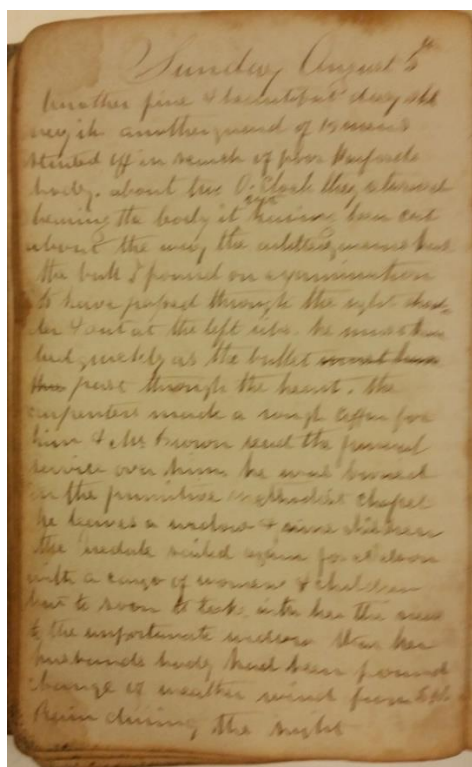 Sunday August 5th
Another fine & beautiful day
another guard of 19 men
started off in search of poor
body. about two O,Clock they returned
bearing the body it having been cut
about the way
the bull I found on examination
to have passed through the right
& out at the left he must
quietly as the bullet must have
pass through the heart. the
carpenters made a rough coffin for
him & Mr Brown read the funeral
service over him he was buried
in the primitive Methodist Chapel
he leaves a widow & nine children
the sailed again for
with a cargo of women & children
but to soon to take with her the news
to the unfortunate widow that her
husbands body had been found
change of weather wind from
Rain during the night